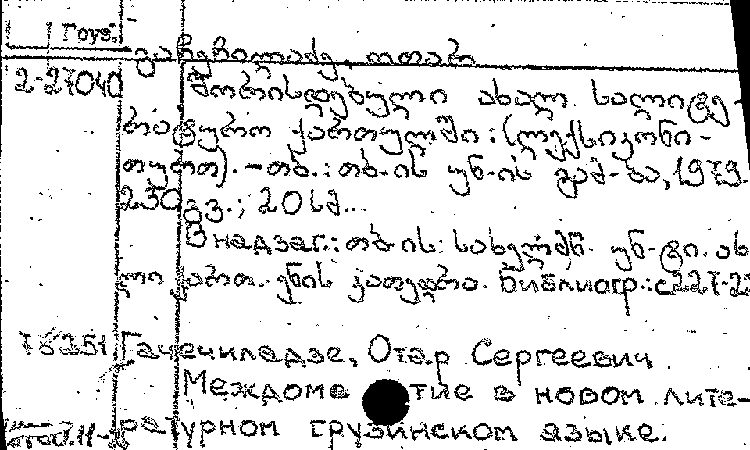 Груз.
გაჩეჩილაძე, ოთარ
2-27040 შორისდებული ახალ სალიტე-
რატურო ქართულში: (ლექსიკონი-
თურთ). - თბ.: თბ-ის უნ-ის გამ-ბა, 1979.
230გვ.; 20სმ..
В надзаг.: თბ-ის სახელმწ. უნ-ტი. ახ
ლი ქართ. ენის კათედრა. Библиогр.: с 227-
Гачечиладзе, Отар Сергеевич
Междоме тие в новом лите-
ратурном грузинском языке.